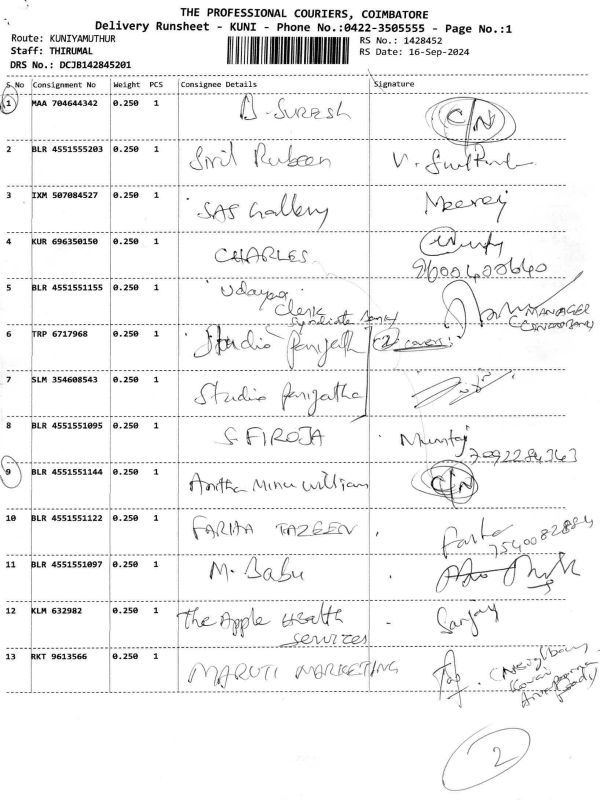 THE PROFESSIONAL COURIERS, COIMBATORE
Delivery Runsheet - KUNI - Phone No.:0422-3505555 - Page No.:1
Route: KUNIYAMUTHUR
RS No.: 1428452
Staff: THIRUMAL
RS Date: 16-Sep-2024
DRS No.: DCJB142845201
S No Consignment No Weight PCS Consignee Details Signature
1 MAA 704644342 0.250 1 SURESH C/N
2 BLR 4551555203 0.250 1 V.
3 IXM 507084527 0.250 1 SAS Gallery
4 KUR 696350150 0.250 1 CHARLES
9600400640
5 BLR 4551551155 0.250 1 Udaya
Clerk MANAGER
Syndicate
6 TRP 6717968 0.250 1 Studio (2) covers
7 SLM 354608543 0.250 1 Studio
8 BLR 4551551095 0.250 1 S FIROJA Mumtaj
9 BLR 4551551144 0.250 1 Minu William C/N
10 BLR 4551551122 0.250 1 TAZEEN
7540082884
11 BLR 4551551097 0.250 1 M. Babu
12 KLM 632982 0.250 1 The Apple Health Sanjay
services
13 RKT 9613566 0.250 1 MARUTI MARKETING
2